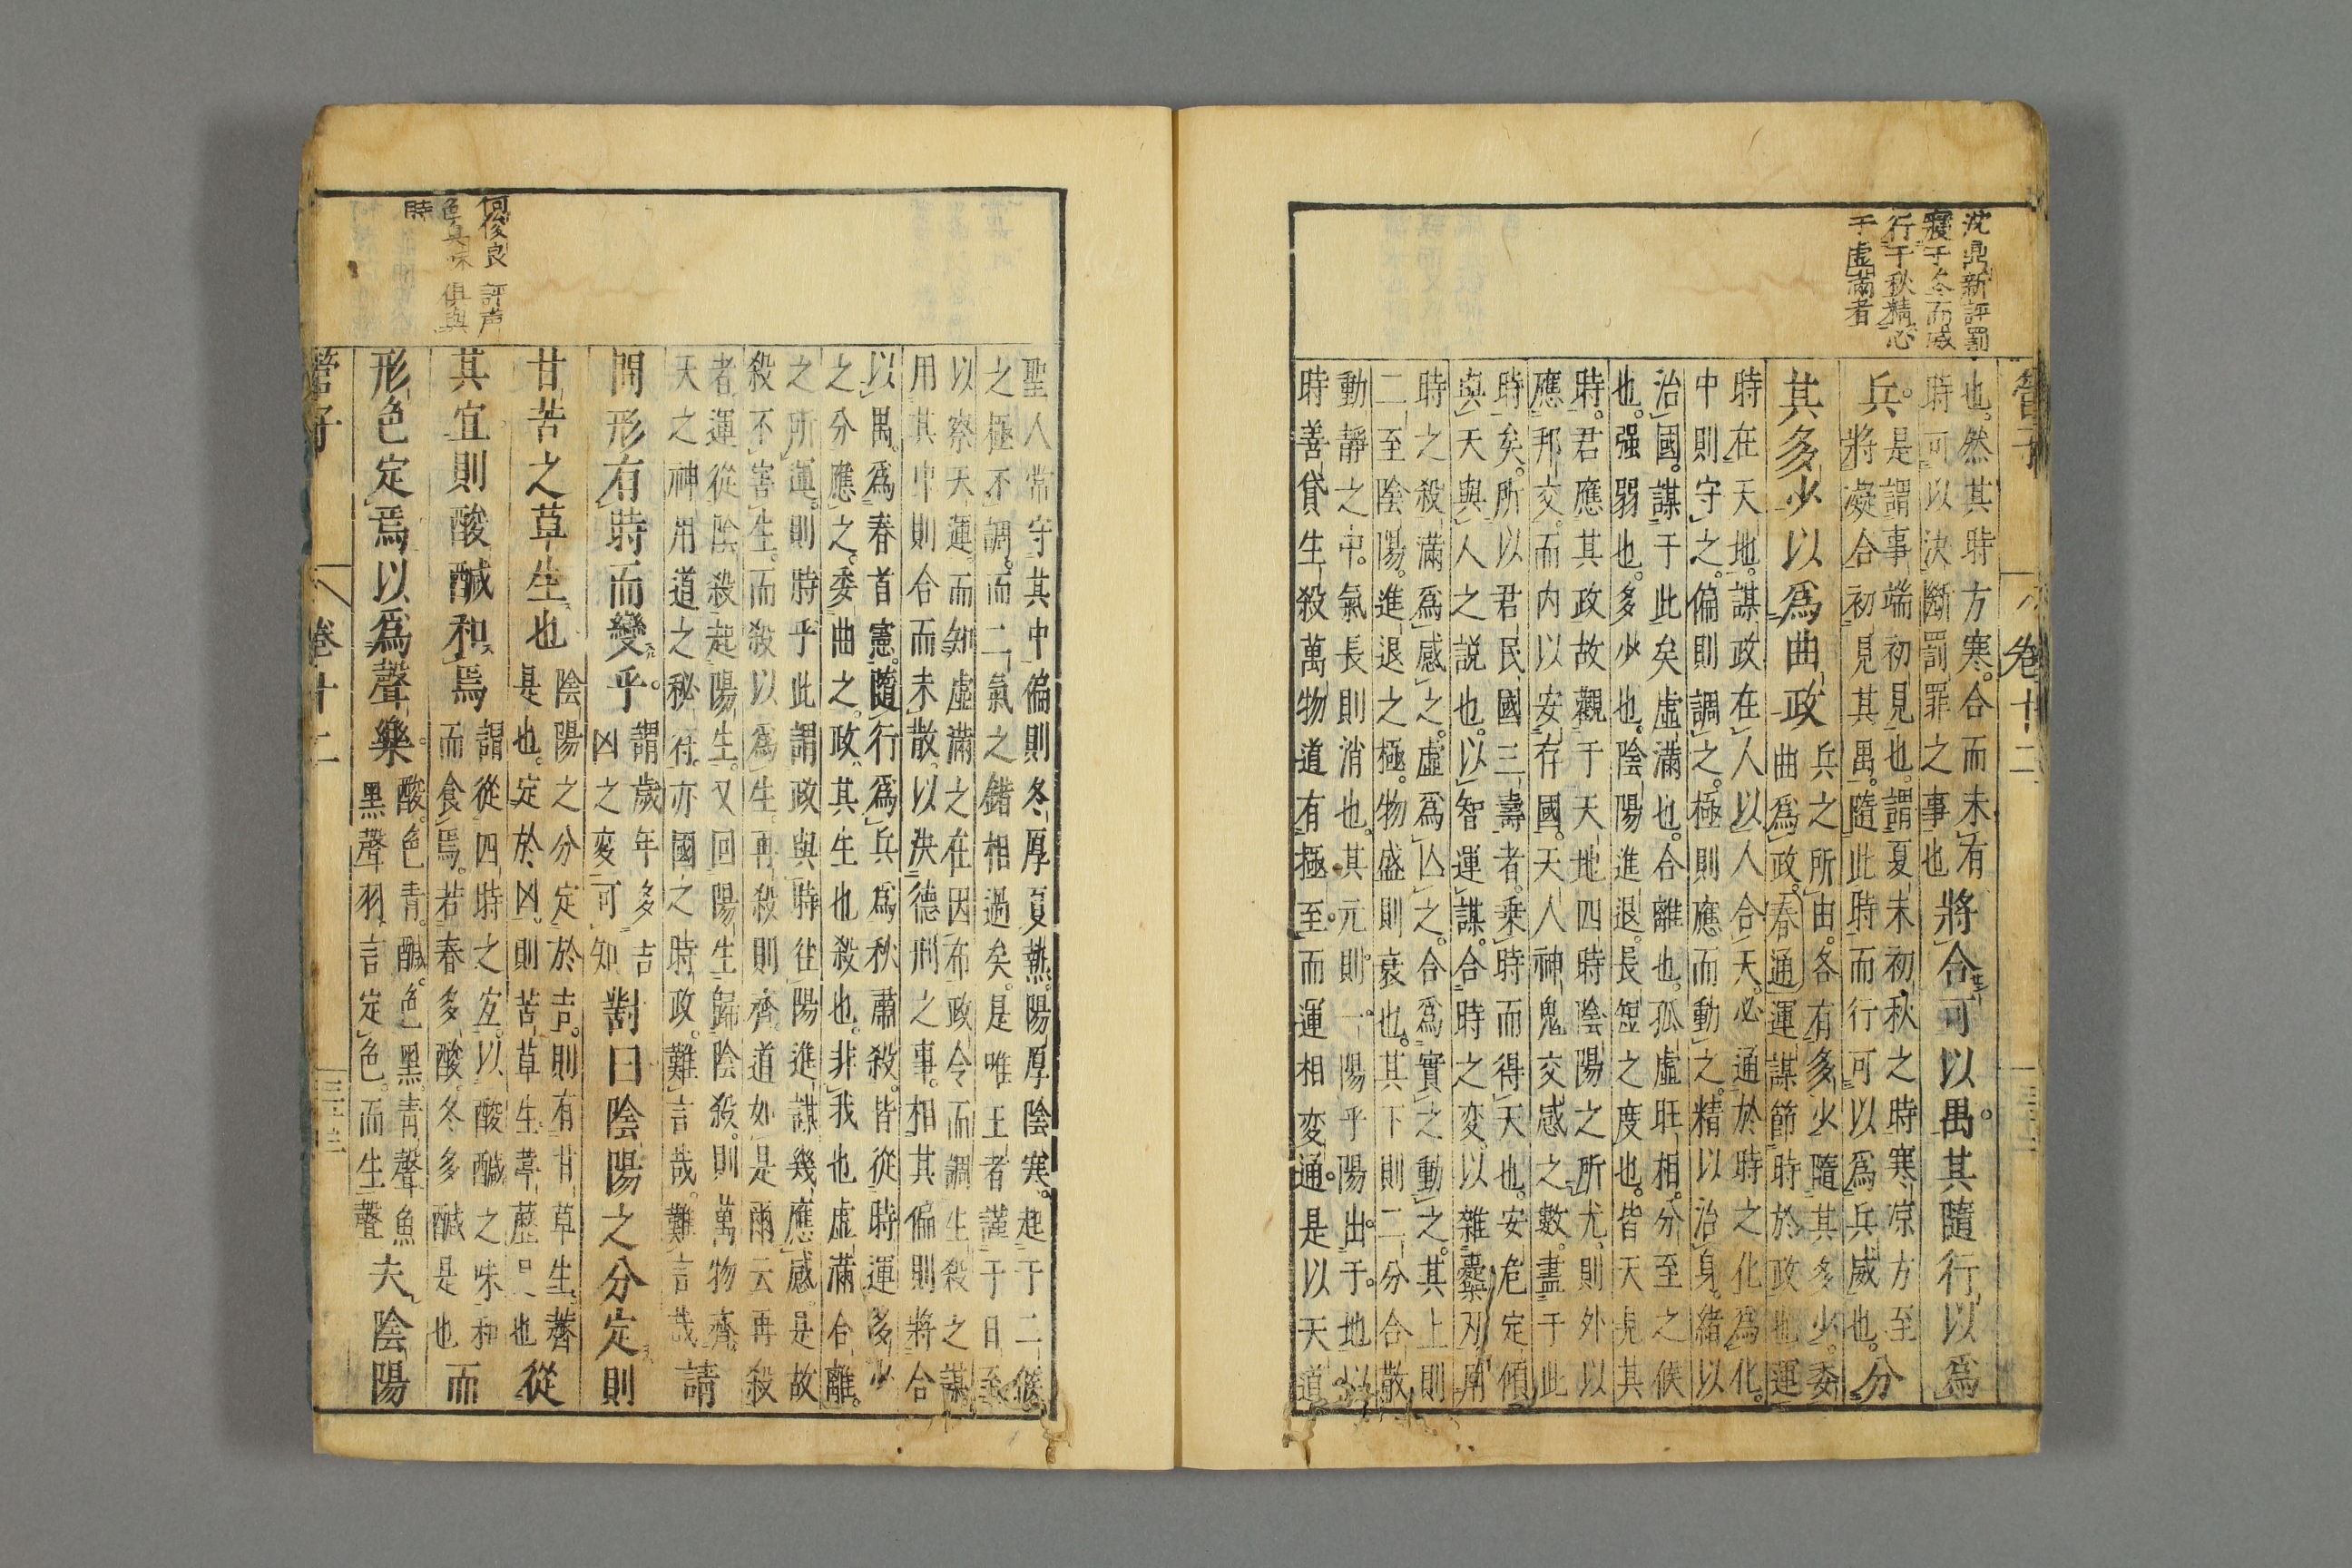 沈鼎新評罰
寢于冬而威
行于秋精心
于虛滿者
管子 卷十二 三十二
也。然其時方寒。合而未有
時可以決斷罰罪之事也
將合可以禺。其隨行以爲
兵。
是謂事端初見也。謂夏末初秋之時寒凉方至
將凝合初見其禺。隨此時而行可以爲兵威也。
分
其多少以爲曲政
兵之所由。各有多少隨其多少。委
曲爲政。春通運謀節時於政也運
時在天地。謀政在人以人合天。必通於時之化爲化。
中則守之。偏則調之。極則應而動之。精以治身。緒以
治國。謀于此矣虛滿也。合離也。孤虛旺相。分至之候
也。强弱也。多少也。陰陽進退。長短之度也。皆天見其
時。君應其政故觀于天地四時陰陽之所尤。則外以
應邦交。而内以安存國。天人神鬼交感之數。盡于此
時矣。所以君民國三壽者。乗時而得天也。安危定傾
與天與人之説也。以智運謀。合時之変以雜橐刃
時之殺滿爲感之。虛爲亾之。合爲實之動之。其上則
二至陰陽。進退之極。物盛則衰也。其下則二分合散
動靜之中。氣長則消也。其元則。一陽乎陽出。于地以
時善貸生殺萬物道有極至。而運相変通。是以天道
聖人常守其中偏則冬厚夏熱。陽厚陰寒。起于二候
之極不調。而二氣之錯相過矣。是唯王者謹于日至
以察天運。而知虛滿之在因布政令而調生殺之謀。
用其中則合而未散。以決德刑之事。相其偏則將合
以禺。爲春首憲。隨行爲兵爲秋肅殺。皆從時運多少
之分應之。委曲之。政其生也殺也。非我也虛滿合離。
之所運。則時乎此謂政與時往陽進謀幾應感。是故
殺不害生。而殺以爲生。再殺則齊。道如是雨云再殺
者運從陰殺起陽生。又回陽生歸陰殺。則萬物齊
天之神用道之秘符亦國之時政。難言哉。難言哉
請
問形有時而變乎。
謂歲年多吉
凶之変可知
對曰陰陽之分定則
甘苦之草生也
陰陽之分定於吉。則有甘草生。薺
是也。定於凶。則苦草生葶藶是也
從
其宜則酸醎和焉
謂從四時之宜。以酸醎之味和
而食焉。若春多酸。冬多醎是也
而
形色定焉以爲聲樂。
酸。色青。醎。色黑。青聲魚
黒聲羽。言定色。而生聲
夫陰陽
何俊良評声
色臭味俱與
時
管子 卷十二 三十三